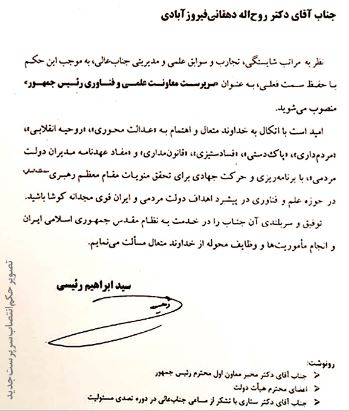 جناب آقای دکتر روح‌اله دهقانی‌فیروزآبادی
نظر به مراتب شایستگی، تجارب و سوابق علمی و مدیریتی جناب‌عالی، به موجب این حکم
با حفظ سمت فعلی، به عنوان «سرپرست معاونت علمی و فناوری رئیس جمهور»
منصوب می‌شوید.
امید است با اتکال به خداوند متعال و اهتمام به «عدالت محوری»، «روحیه انقلابی»،
«مردم‌داری»، «پاک‌دستی»، «فسادستیزی»، «قانون‌مداری» و «مفاد عهدنامه مدیران دولت
مردمی»، با برنامه‌ریزی و حرکت جهادی برای تحقق منویات مقام معظم رهبری
در حوزه علم و فناوری در پیشبرد اهداف دولت مردمی و ایران قوی مجدانه کوشا باشید.
توفیق و سربلندی آن جناب را در خدمت به نظام مقدس جمهوری اسلامی ایران
و انجام مأموریت‌ها و وظایف محوله از خداوند متعال مسألت می‌نمایم.
سید ابراهیم رئیسی
تصویر حکم انتصاب سرپرست جدید
رونوشت:
جناب آقای دکتر مخبر معاون اول محترم رئیس جمهور
اعضای محترم هیأت دولت
جناب آقای دکتر ستاری با تشکر از مساعی جناب‌عالی در دوره تصدی مسئولیت